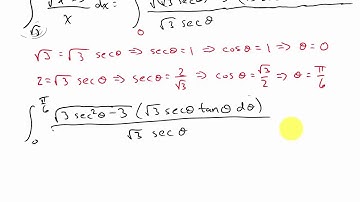 ∫_{√3} √(x² - 3) / x dx = ∫_0 √(√3 sec θ)
√3 = √3 sec θ ⇒ sec θ = 1 ⇒ cos θ = 1 ⇒ θ = 0
2 = √3 sec θ ⇒ sec θ = 2/√3 ⇒ cos θ = √3/2 ⇒ θ = π/6
∫_0^{π/6} √(3 sec² θ - 3) (√3 sec θ tan θ dθ) / √3 sec θ